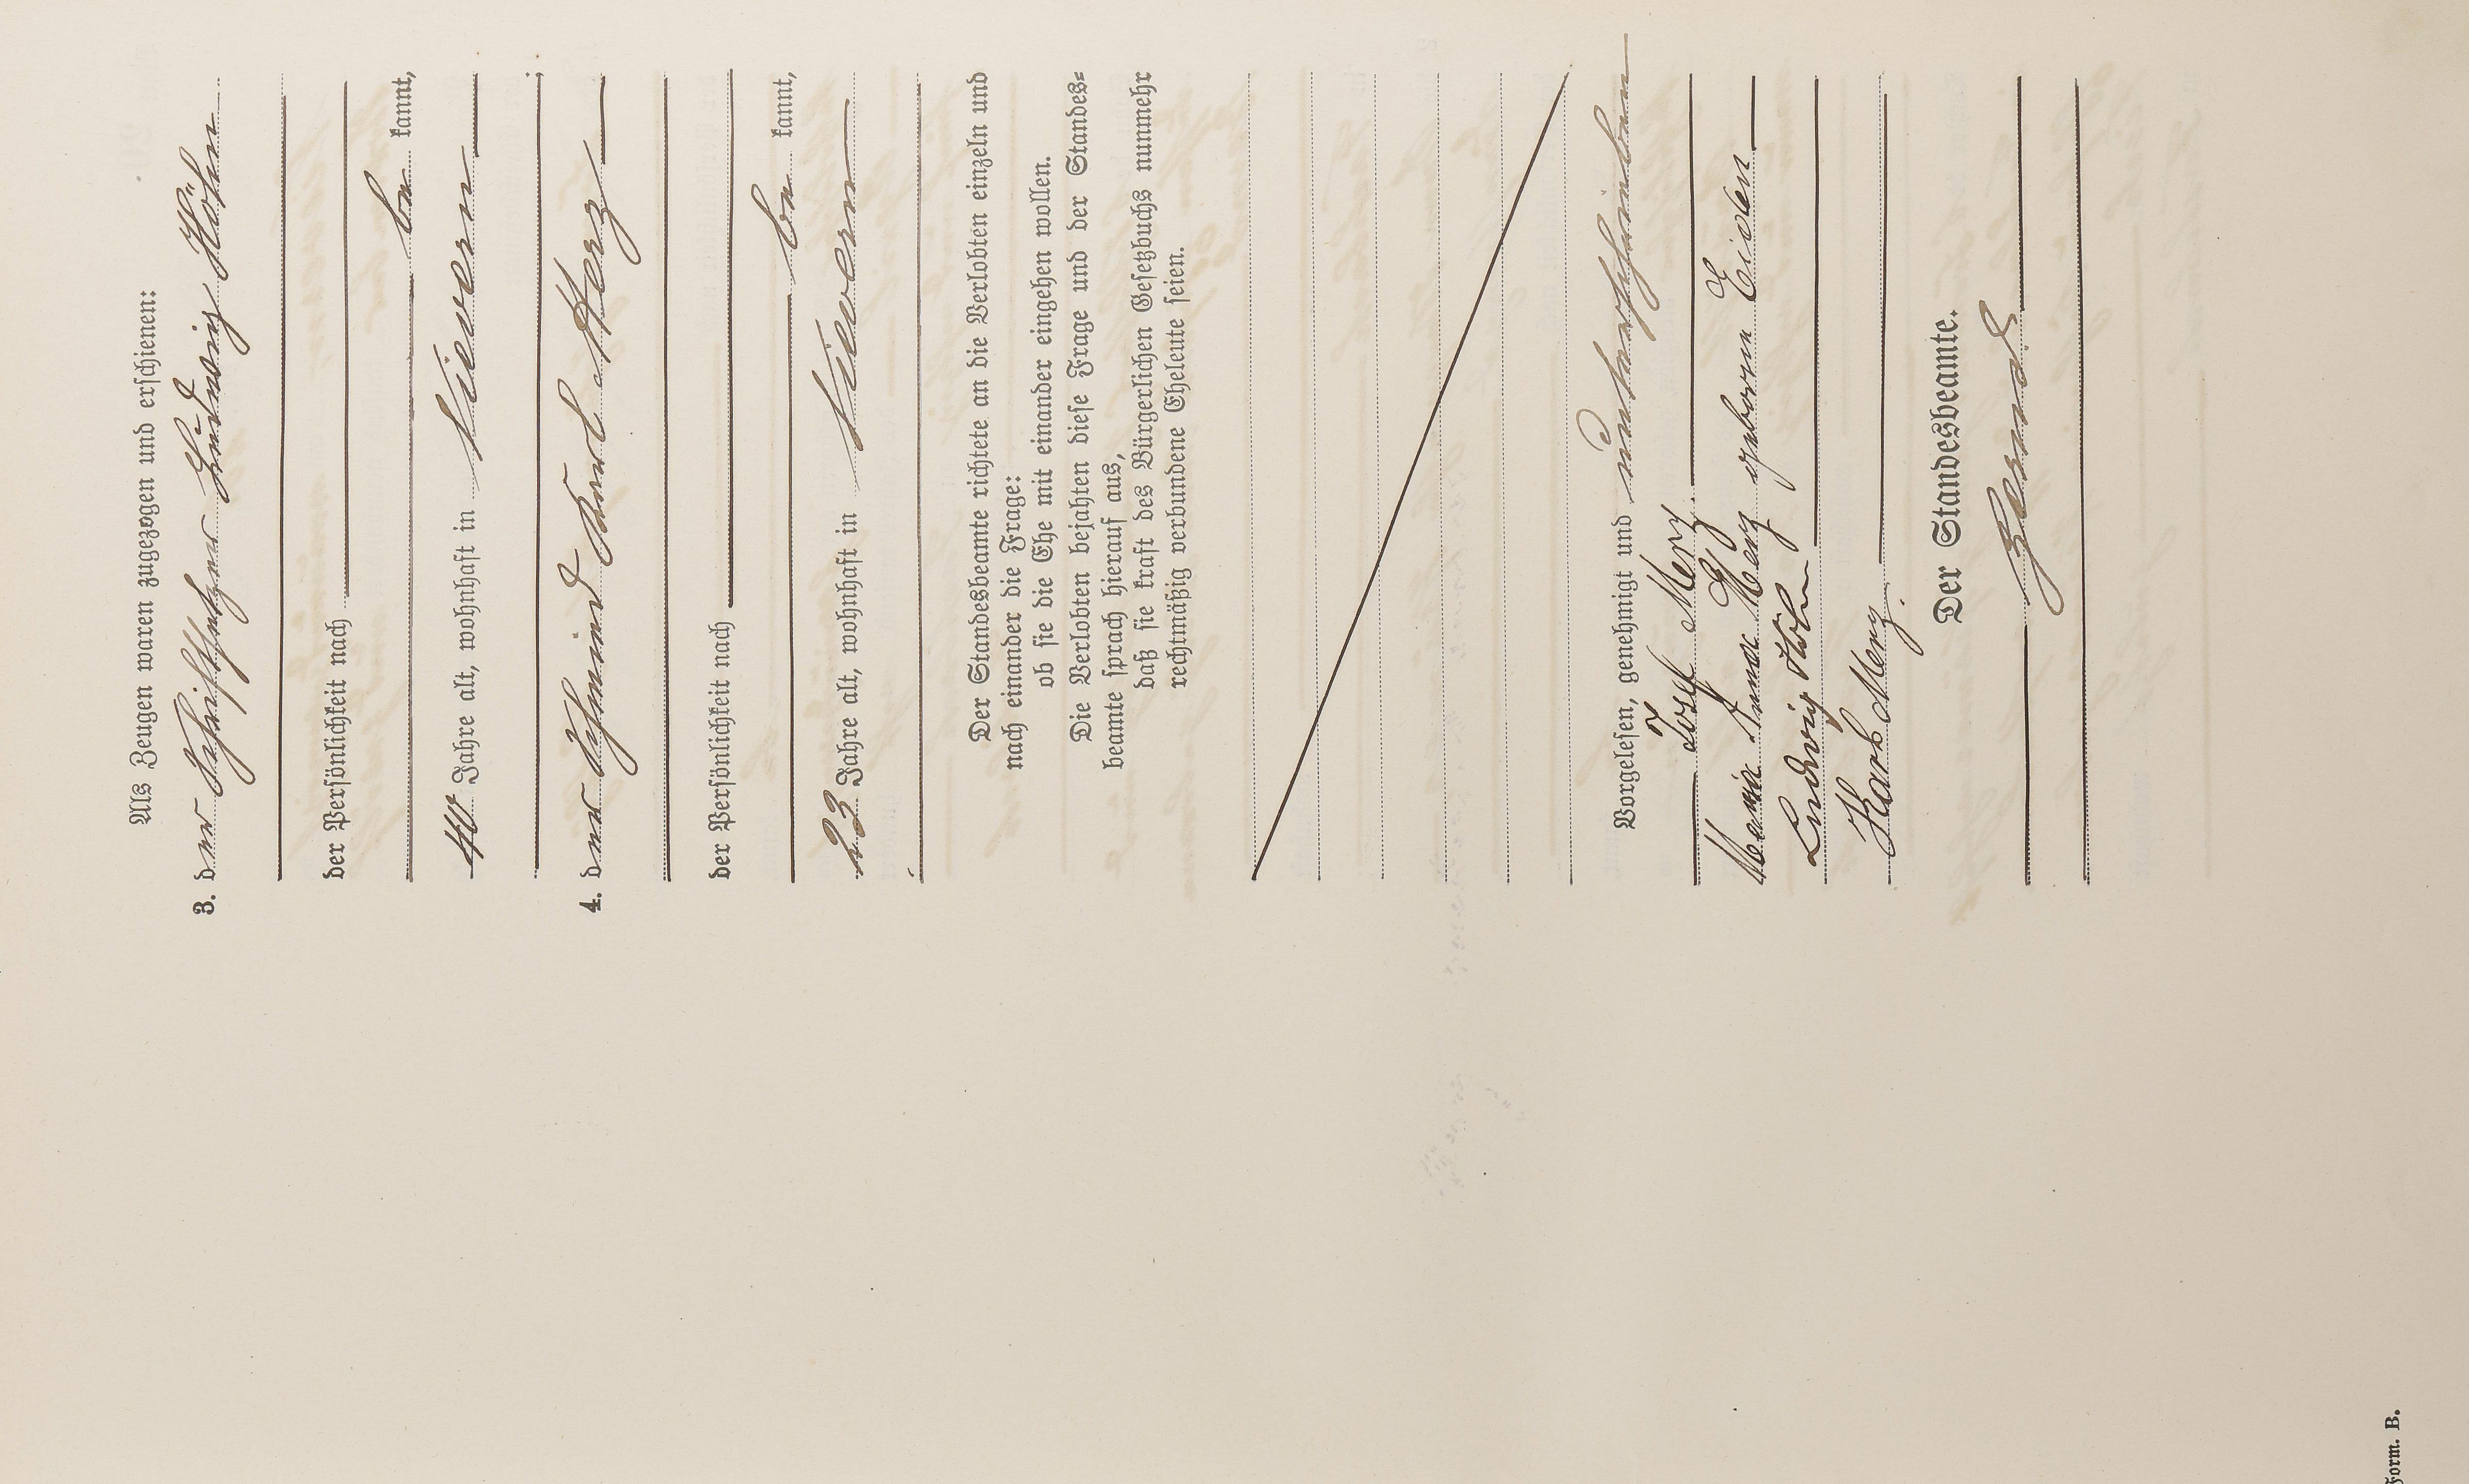 Als Zeugen waren zugezogen und erschienen:
3. der Schriftsetzer Ludwig Höhn
der Persönlichkeit nach
be kannt,
40 Jahre alt, wohnhaft in Nievern
4. der Schmied Karl Merz
der Persönlichkeit nach
be kannt,
23 Jahre alt, wohnhaft in Nievern
Der Standesbeamte richtete an die Verlobten einzeln und
nach einander die Frage:
ob sie die Ehe mit einander eingehen wollen.
Die Verlobten bejahten diese Frage und der Standes-
beamte sprach hierauf aus,
daß sie kraft des Bürgerlichen Gesetzbuchs nunmehr
rechtmäßig verbundene Eheleute seien.
Vorgelesen, genehmigt und unterschrieben
Josef Merz.
Maria Anna Merz geborne Eiden
Ludwig Höhn
Karl Merz.
Der Standesbeamte.
Form. B.